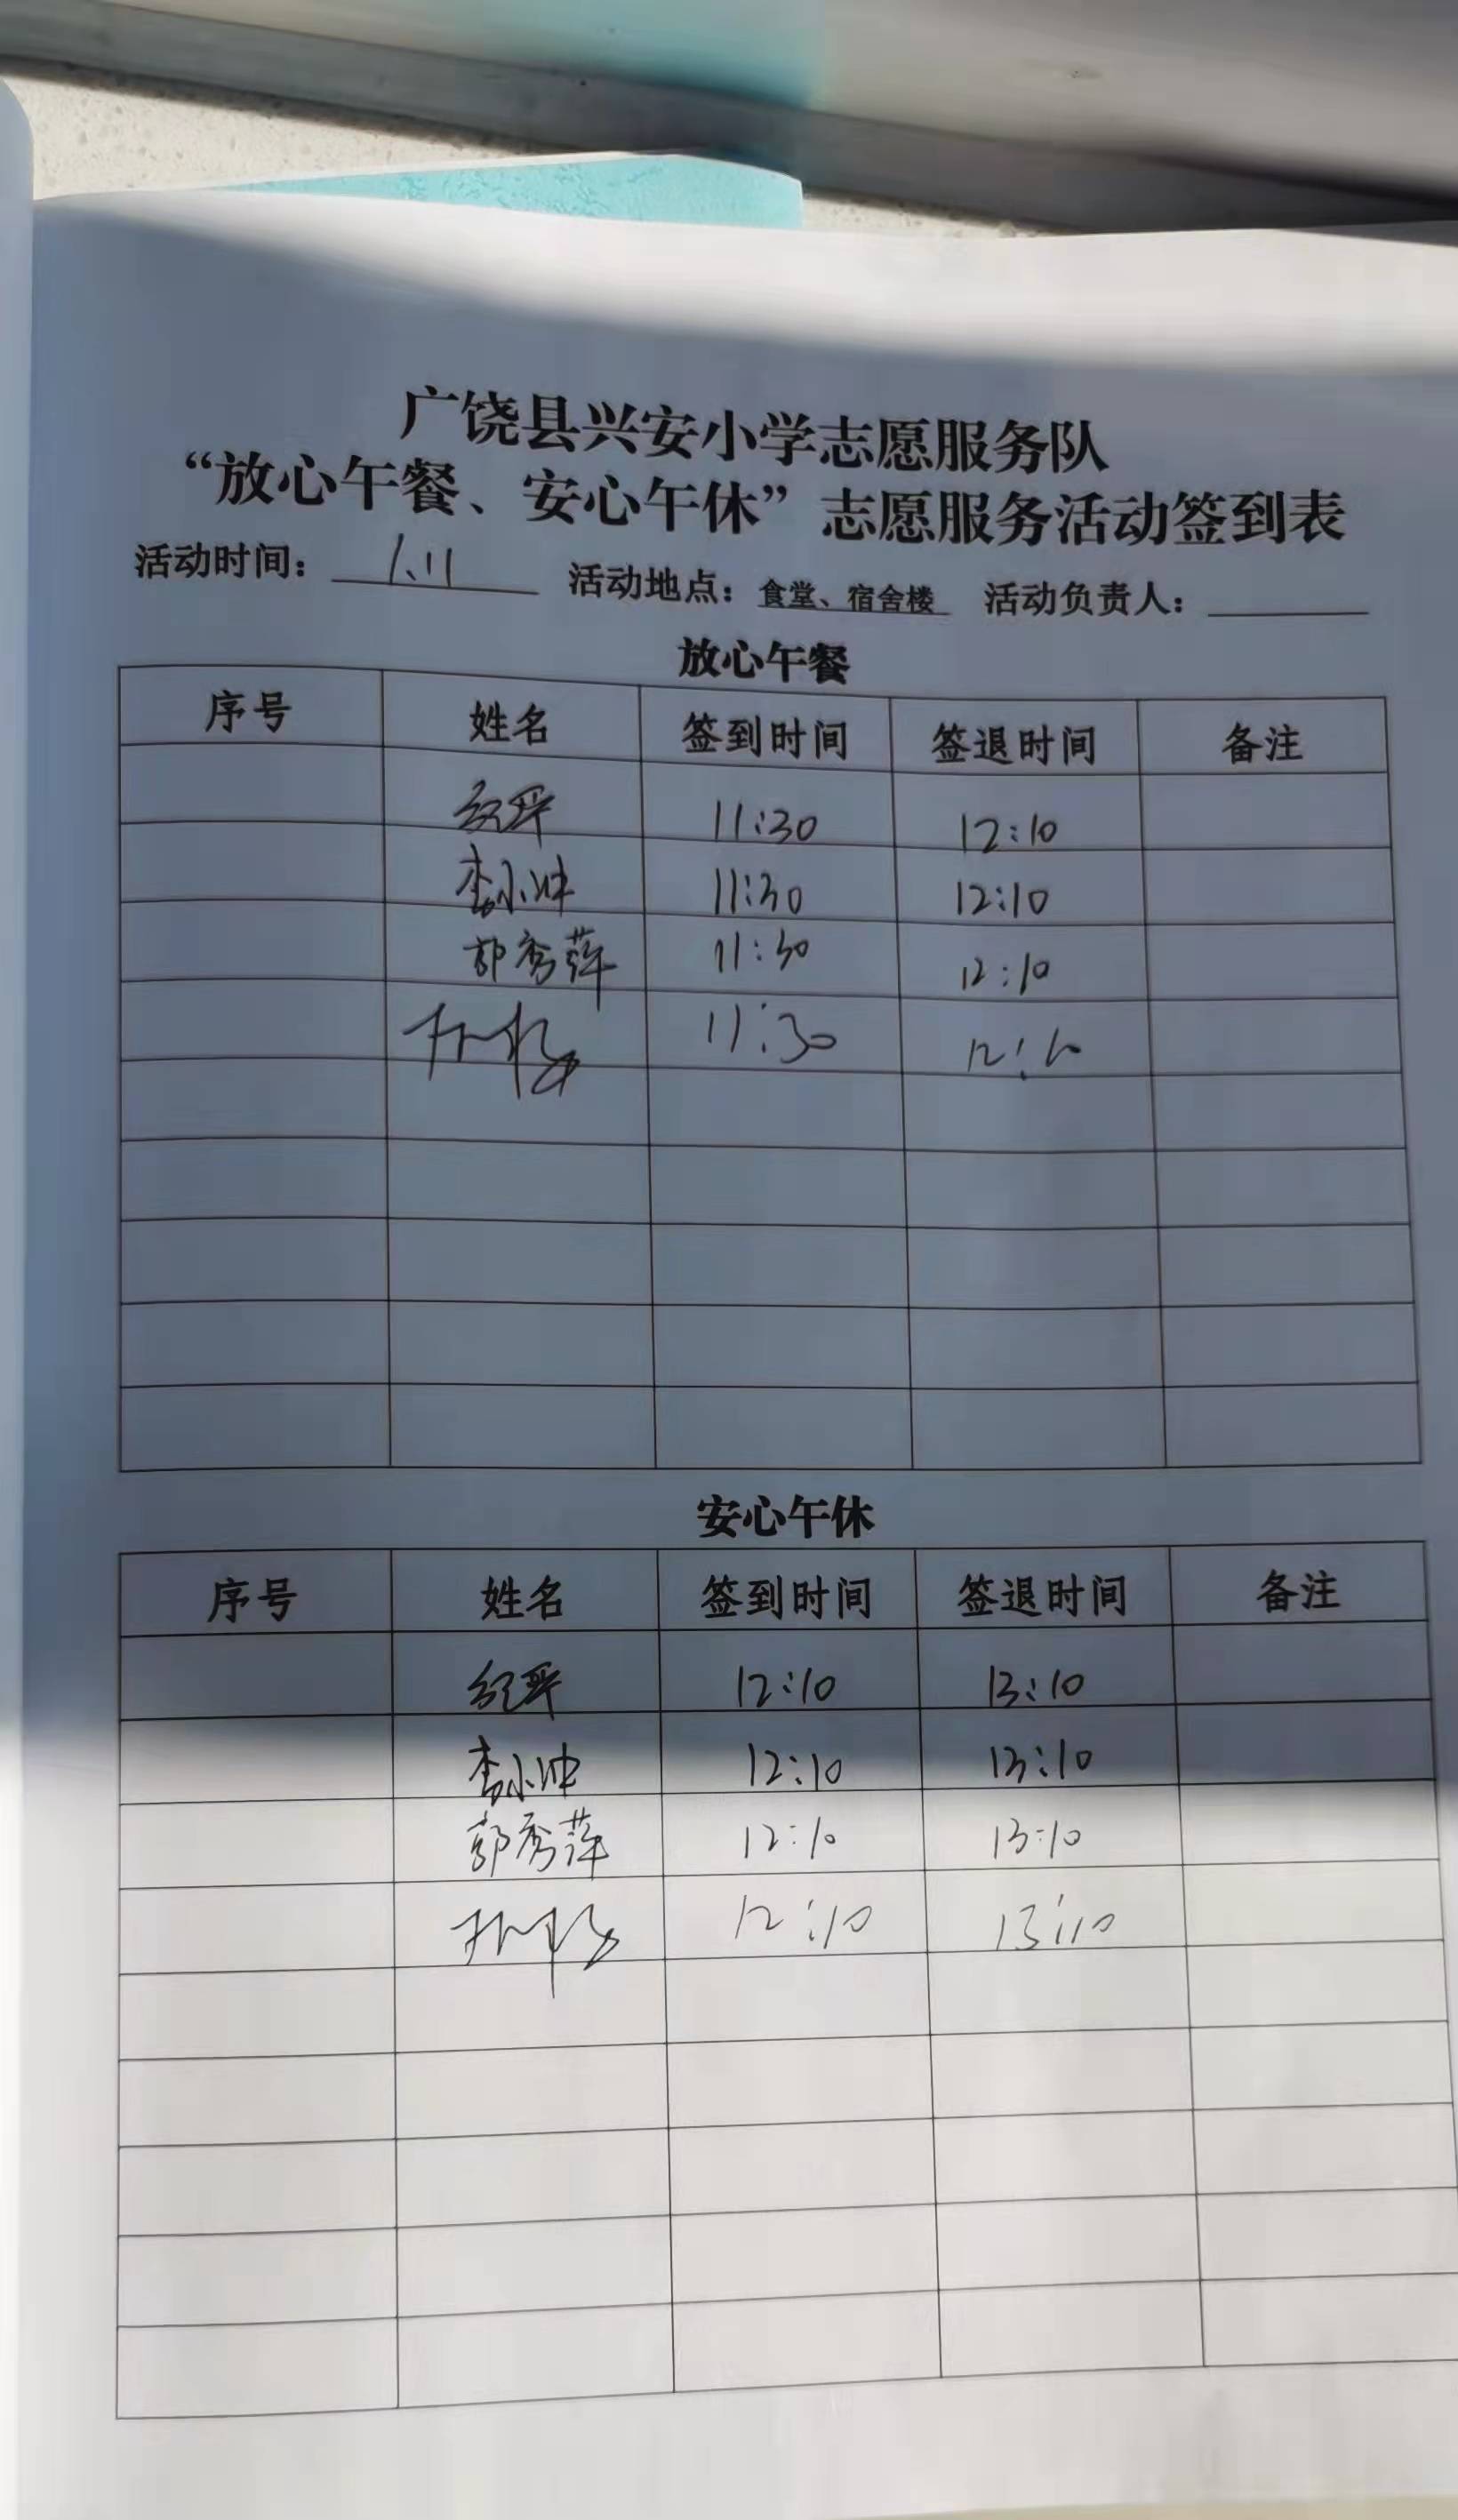 广饶县兴安小学志愿服务队
“放心午餐、安心午休”志愿服务活动签到表
活动时间：1.11 活动地点：食堂、宿舍楼 活动负责人：
放心午餐
序号 姓名 签到时间 签退时间 备注
11:30 12:10
李小冲 11:30 12:10
郭秀萍 11:30 12:10
11:30 12:10
安心午休
序号 姓名 签到时间 签退时间 备注
12:10 13:10
李小冲 12:10 13:10
郭秀萍 12:10 13:10
12:10 13:10